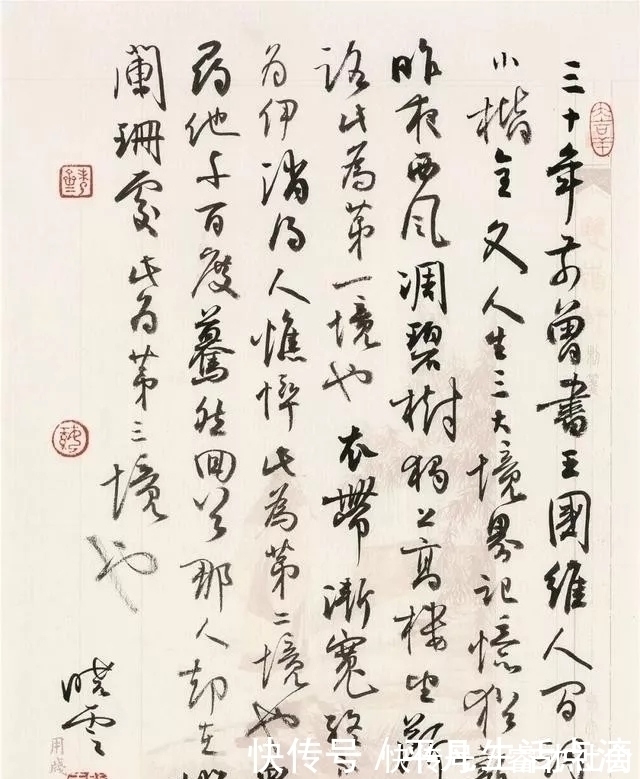 三十年前曾書王國維人間
小楷全文人生三大境界記憶猶
昨夜西風凋碧樹獨上高樓望
路此為第一境也 衣帶漸寬終
為伊消得人憔悴此為第二境也
尋他千百度驀然回首那人却在
闌珊處此為第三境也
曉雲
快传号